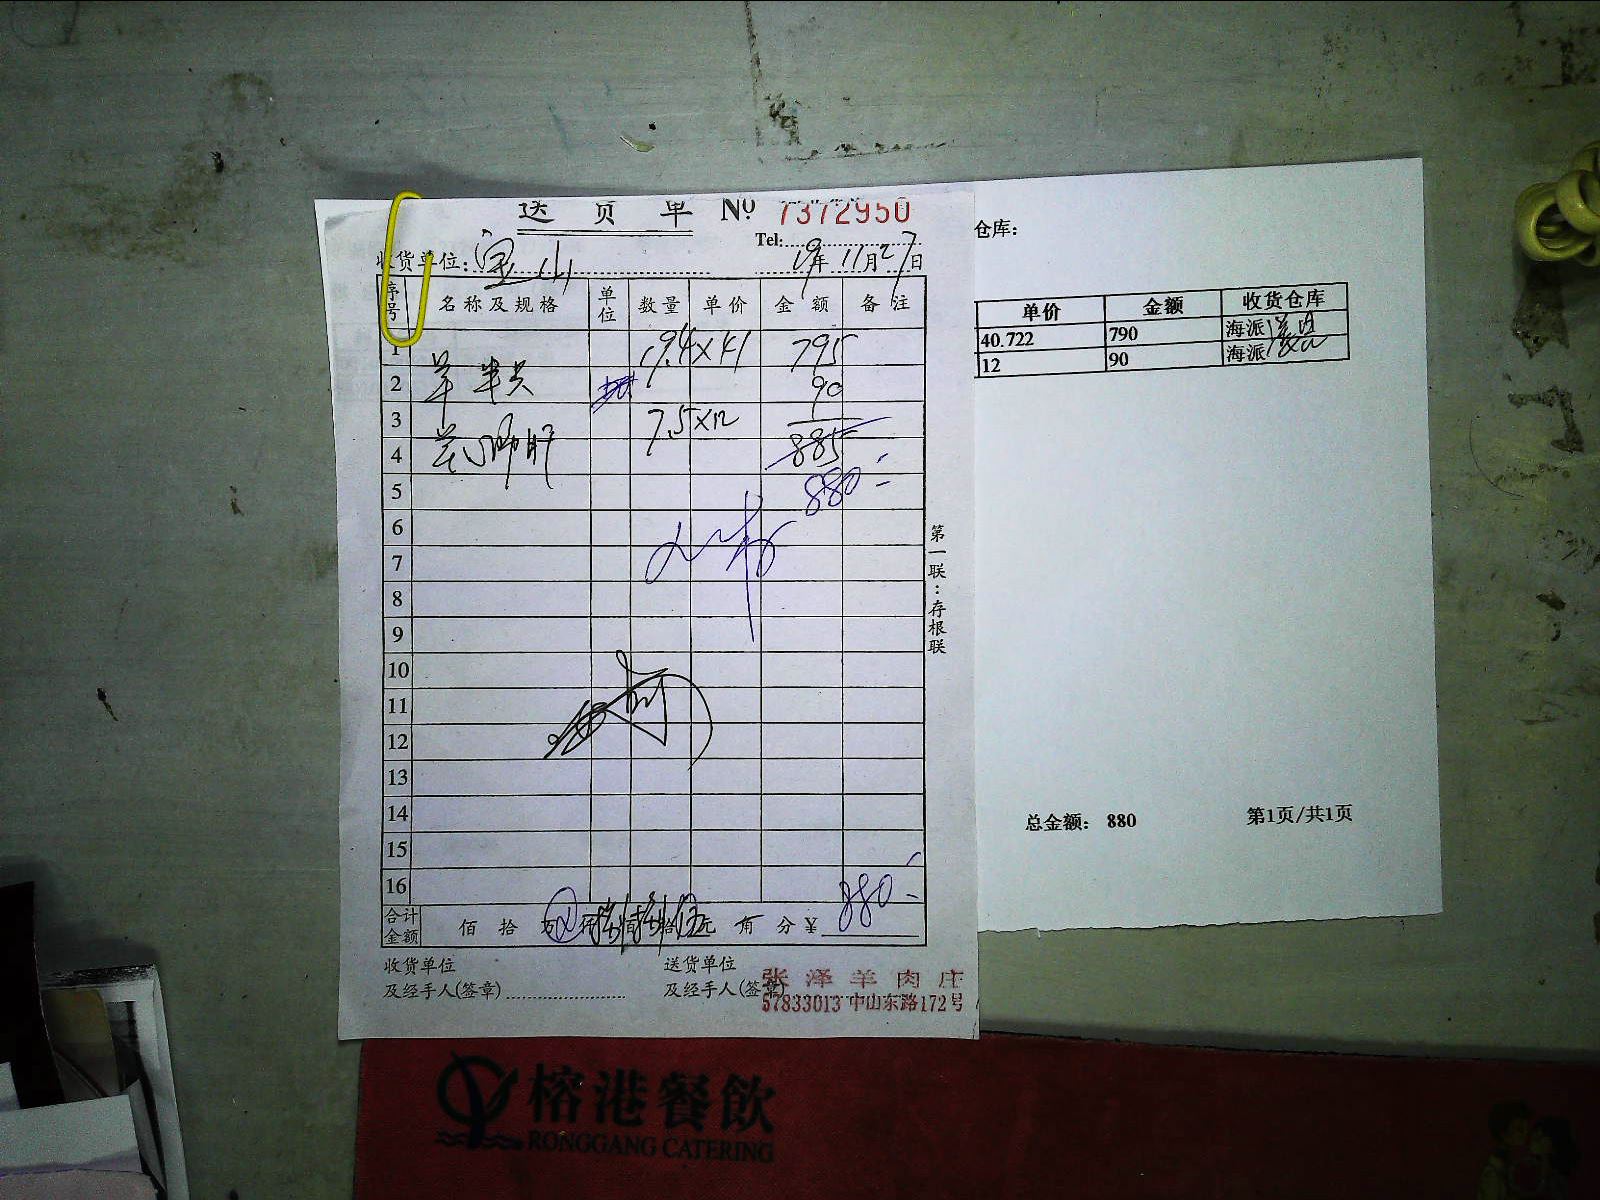 送货单 № 7372950
Tel:
收货单位: 宝山 19年 11月27日
序号 名称及规格 单位 数量 单价 金额 备注
1 19.4×41 795
2 羊半只 90
3 7.5×12
4 885
5 880-
6
7
8
9
10
11
12
13
14
15
16
合计金额 佰 拾 元 角 分 ¥ 880-
收货单位 送货单位
及经手人(签章) 及经手人(签章)
张泽羊肉庄
57833013 中山东路172号
第一联:存根联
仓库:
单价 金额 收货仓库
40.722 790 海派
12 90 海派
总金额: 880 第1页/共1页
榕港餐飲
RONGGANG CATERING